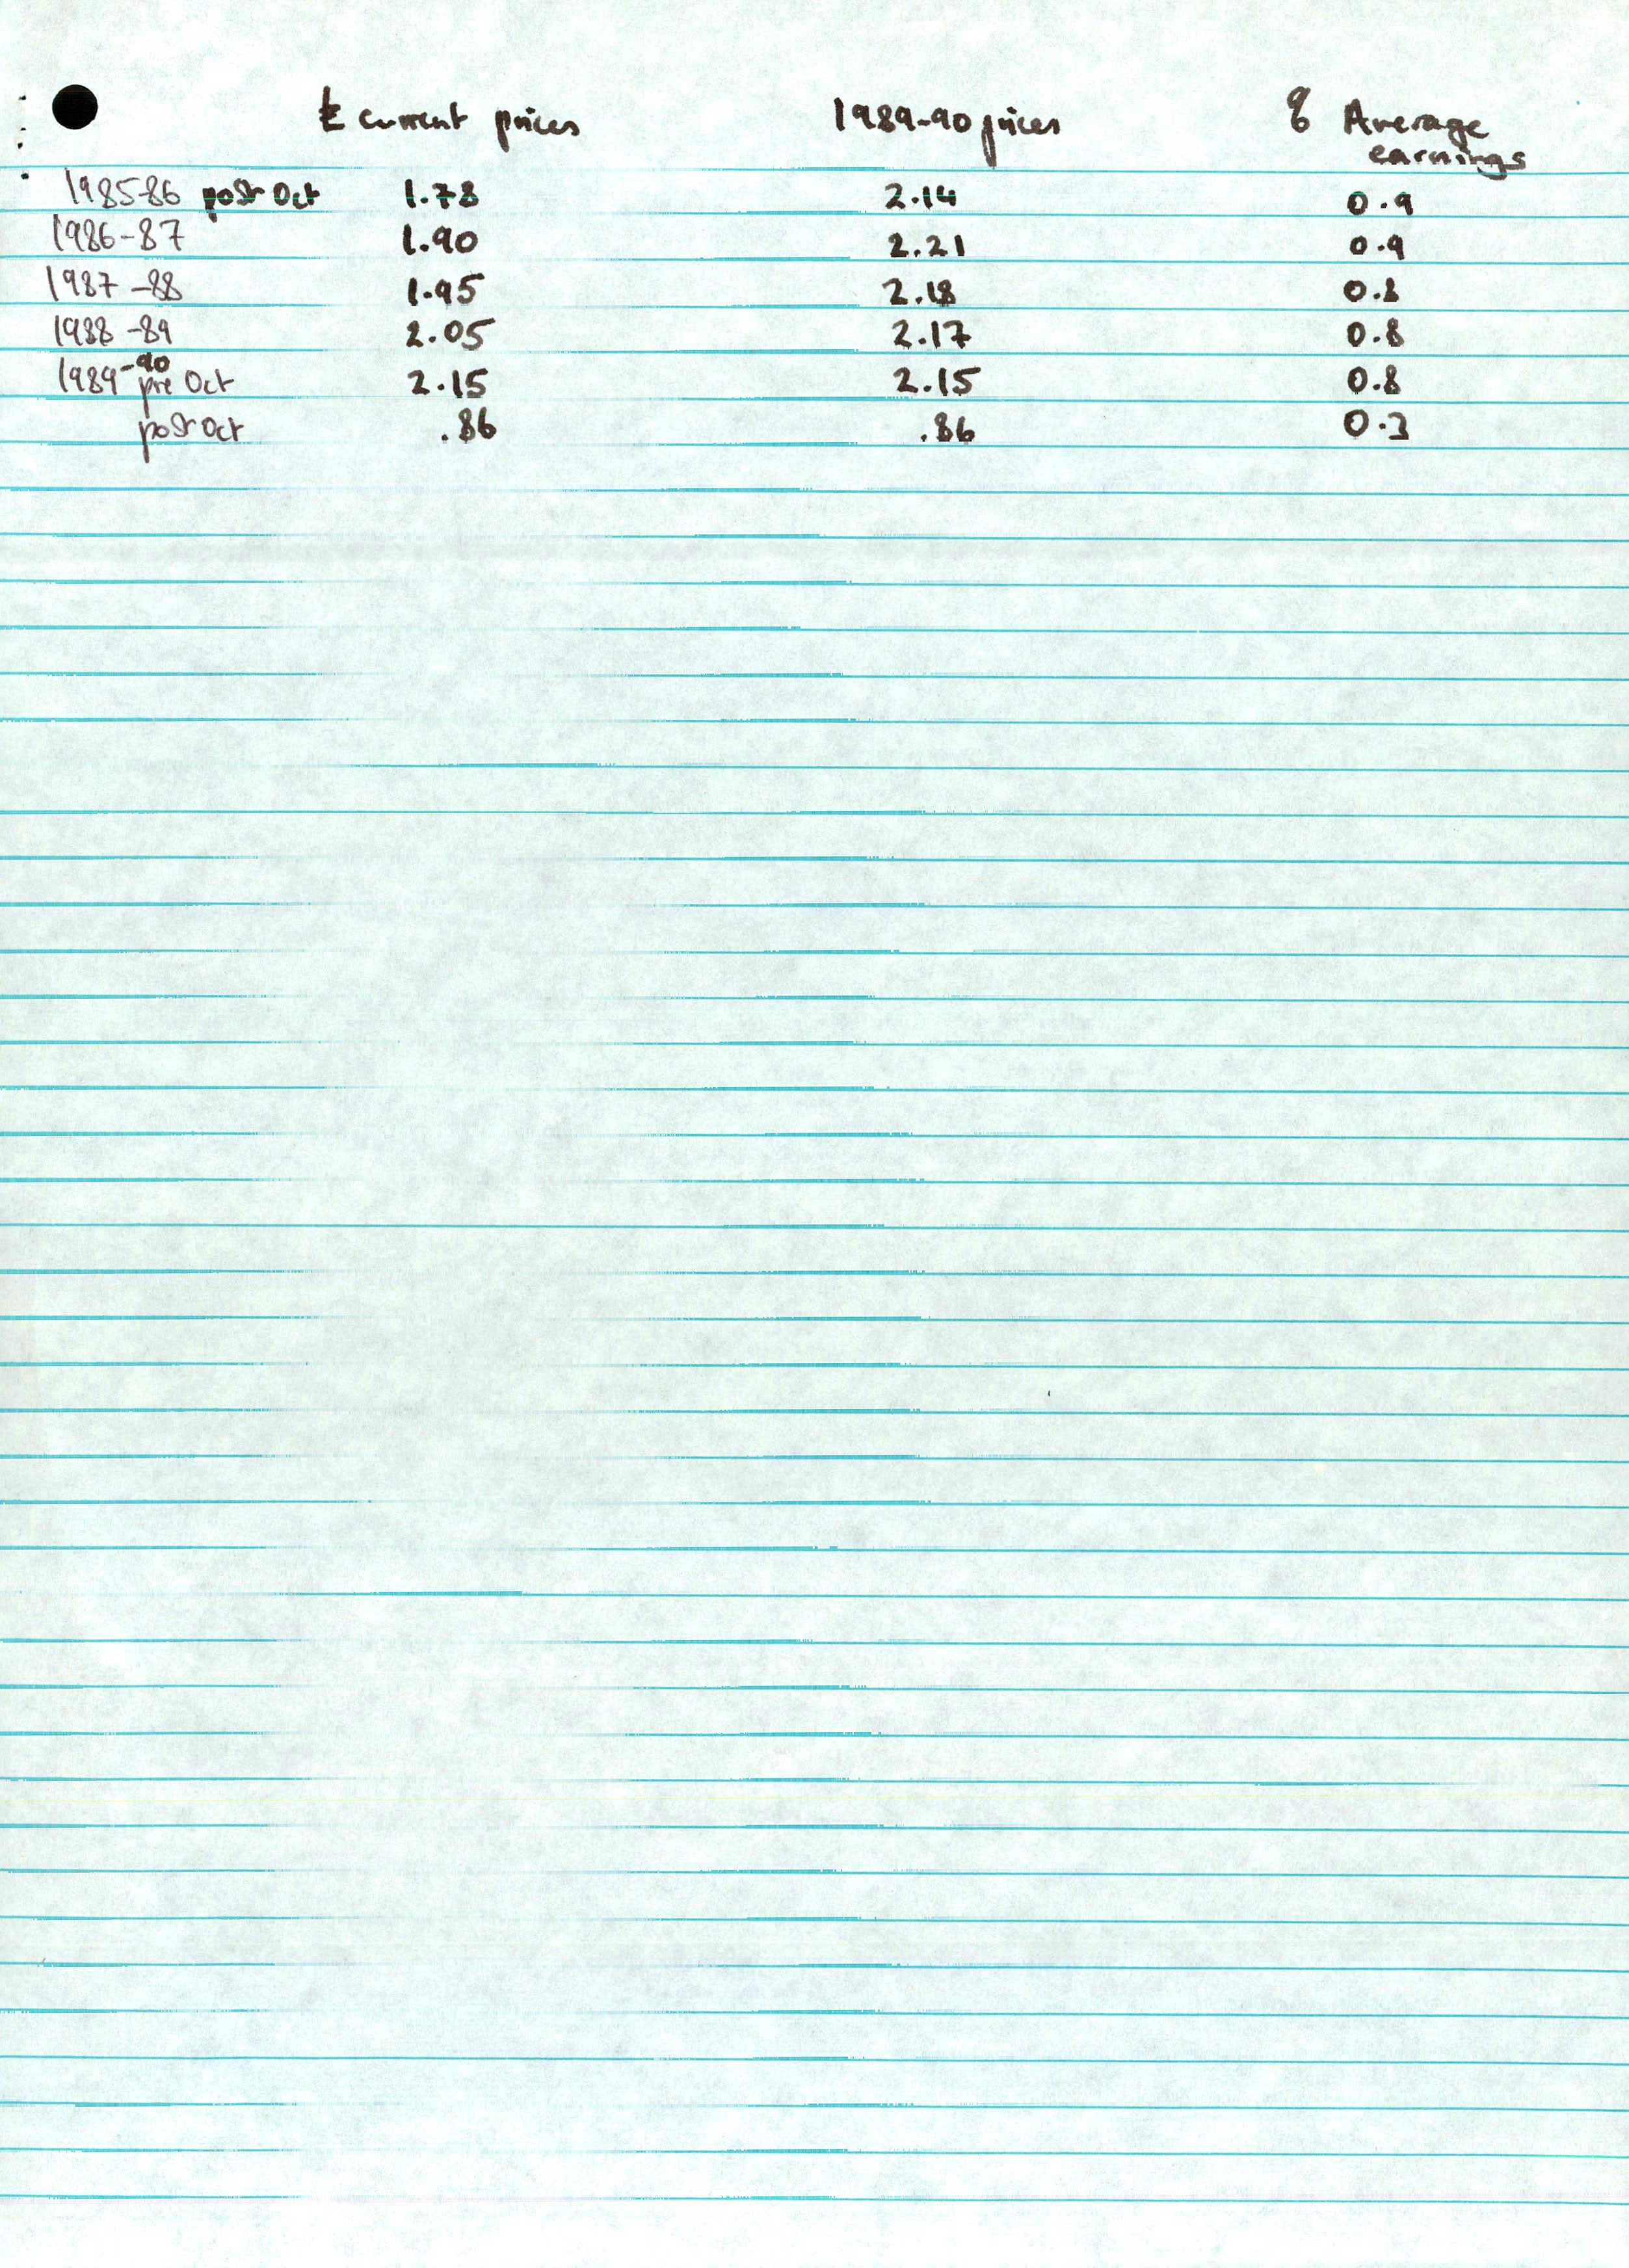 £ current prices 1989-90 prices % Average
earnings
1985-86 post Oct 1.78 2.14 0.9
1986-87 1.90 2.21 0.9
1987-88 1.95 2.18 0.8
1988-89 2.05 2.17 0.8
1989-90 pre Oct 2.15 2.15 0.8
post Oct .86 .86 0.3